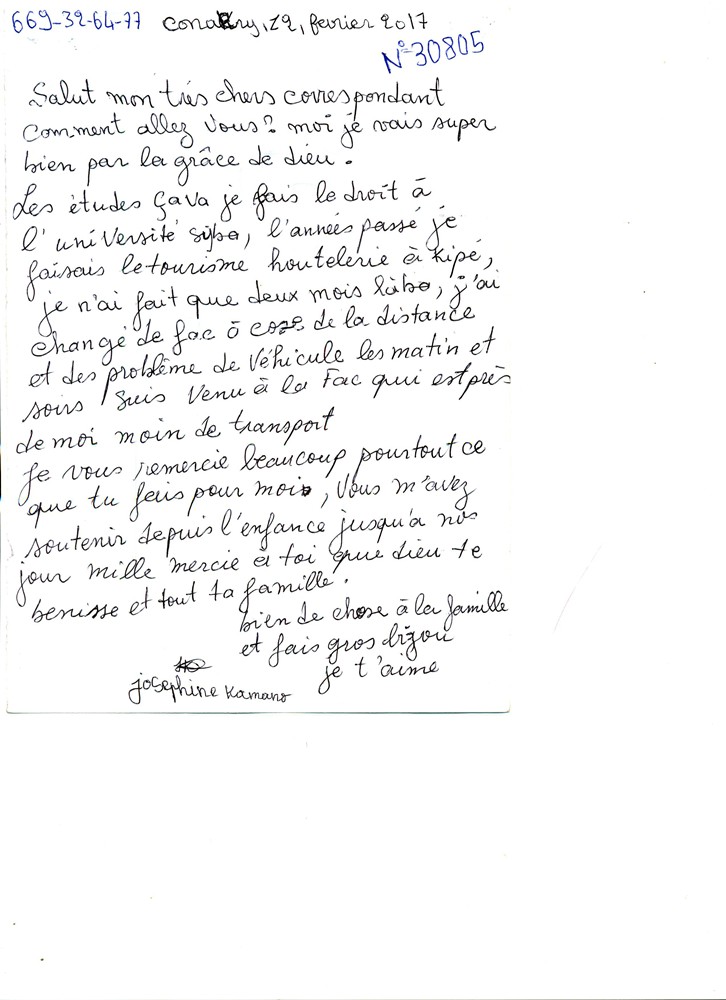 669-39-64-77 conakry, 12, fevrier 2017
N° 30805
Salut mon très chers correspondant
Comment allez Vous? moi je vais super
bien par la grâce de dieu.
Les ètudes Çava je fais le droit à
l'université, l'années passé je
faisais le tourisme houtelerie à Kipé,
je n'ai fait que deux mois làba, j'ai
changé de fac à de la distance
et des problême de véhicule les matin et
soirs suis Venu à la Fac qui est près
de moi moin de transport
Je vous remercie beaucoup pour tout ce
que tu fais pour moi, Vous m'avez
soutenir depuis l'enfance jusqu'à nos
jour mille mercie à toi que dieu te
benisse et tout ta famille.
bien de chose à la famille
et fais gros bizou
je t'aime
josephine Kamano